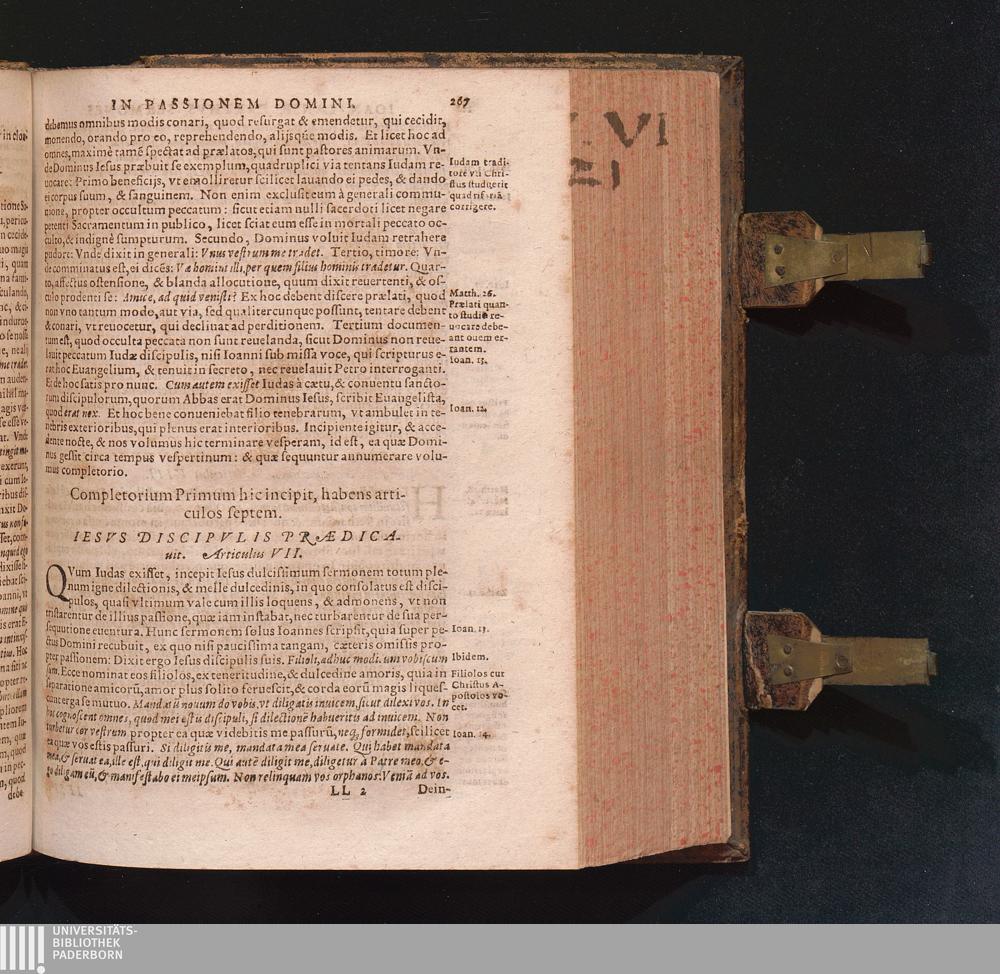 IN PASSIONEM DOMINI. 267
debemus omnibus modis conari, quod resurgat & emendetur, qui cecidit,
monendo, orando pro eo, reprehendendo, alijsq́ue modis. Et licet hoc ad
omnes, maximè tamē spectat ad prælatos, qui sunt pastores animarum. Vn-
de Dominus Iesus præbuit se exemplum, quadruplici via tentans Iudam re-
uocare: Primo beneficijs, vt emolliretur scilicet lauando ei pedes, & dando
ei corpus suum, & sanguinem. Non enim exclusit eum à generali commu-
nione, propter occultum peccatum: sicut etiam nulli sacerdoti licet negare
petenti Sacramentum in publico, licet sciat eum esse in mortali peccato oc-
culto, & indignè sumpturum. Secundo, Dominus voluit Iudam retrahere
pudore: Vnde dixit in generali: Vnus vestrum me tradet. Tertio, timore: Vn-
de comminatus est, ei dicēs: Væ homini illi, per quem filius hominis tradetur. Quar-
to, affectus ostensione, & blanda allocutione, quum dixit reuertenti, & os-
culo prodenti se: Amice, ad quid venisti? Ex hoc debent discere prælati, quod
non vno tantum modo, aut via, sed qualitercunque possunt, tentare debent
& conari, vt reuocetur, qui declinat ad perditionem. Tertium documen-
tum est, quod occulta peccata non sunt reuelanda, sicut Dominus non reue-
lauit peccatum Iudæ discipulis, nisi Ioanni sub missa voce, qui scripturus e-
rat hoc Euangelium, & tenuit in secreto, nec reuelauit Petro interroganti.
Et de hoc satis pro nunc. Cum autem exisset Iudas à cœtu, & conuentu sancto-
rum discipulorum, quorum Abbas erat Dominus Iesus, scribit Euangelista,
quod erat nox. Et hoc bene conueniebat filio tenebrarum, vt ambulet in te-
nebris exterioribus, qui plenus erat interioribus. Incipiente igitur, & acce-
dente nocte, & nos volumus hic terminare vesperam, id est, ea quæ Domi-
nus gessit circa tempus vespertinum: & quæ sequuntur annumerare volu-
mus completorio.
Iudam tradi-
torē vt Chri-
stus studuerit
quadrifariā
corrigere.
Matth. 26.
Prælati quan-
to studio re-
uocare debe-
ant ouem er-
rantem.
Ioan. 13.
Ioan. 12.
Completorium Primum hic incipit, habens arti-
culos septem.
IESVS DISCIPVLIS PRÆDICA-
uit. Articulus VII.
QVum Iudas exisset, incepit Iesus dulcissimum sermonem totum ple-
num igne dilectionis, & melle dulcedinis, in quo consolatus est disci-
pulos, quasi vltimum vale cum illis loquens, & admonens, vt non
tristarentur de illius passione, quæ iam instabat, nec turbarentur de sua per-
sequutione euentura. Hunc sermonem solus Ioannes scripsit, quia super pe-
ctus Domini recubuit, ex quo nisi paucissima tangam, cæteris omissis pro-
pter passionem: Dixit ergo Iesus discipulis suis. Filioli, adhuc modicum vobiscum
sum. Ecce nominat eos filiolos, ex teneritudine, & dulcedine amoris, quia in
separatione amicorū, amor plus solito feruescit, & corda eorū magis liques-
cunt erga se mutuo. Mandatū nouum do vobis, vt diligatis inuicem, sicut dilexi vos. In
hoc cognoscent omnes, quod mei estis discipuli, si dilectionē habueritis ad inuicem. Non
turbetur cor vestrum propter ea quæ videbitis me passurū, neq́; formidet, scilicet
ea quæ vos estis passuri. Si diligitis me, mandata mea seruate. Qui habet mandata
mea, & seruat ea, ille est, qui diligit me. Qui autē diligit me, diligetur à Patre meo, & e-
go diligam eū, & manifestabo ei meipsum. Non relinquam vos orphanos: Veniā ad vos.
Ioan. 13.
Ibidem.
Filiolos cur
Christus A-
postolos vo-
cet.
Ioan. 14.
LL 2 Dein-
VI
21
UNIVERSITÄTS-
BIBLIOTHEK
PADERBORN